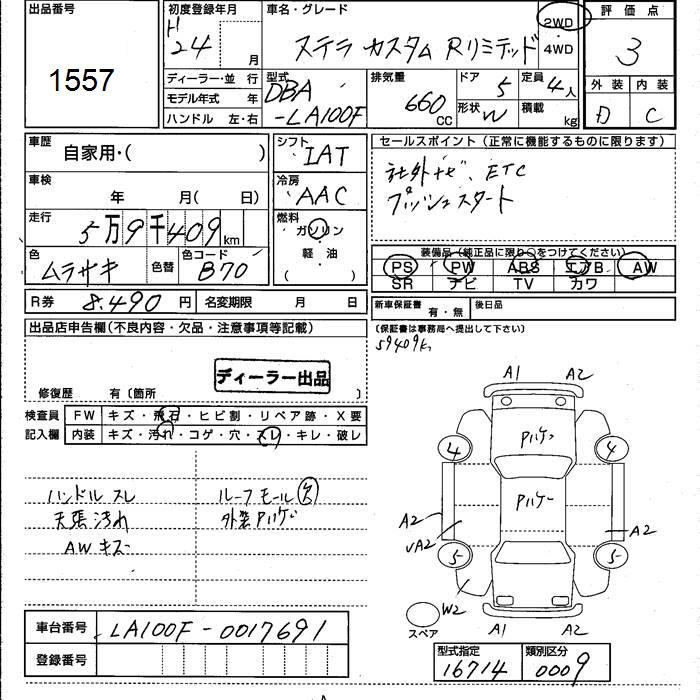 出品番号
1557
初度登録年月
H
24 月
車名・グレード
ステラ カスタム Rリミテッド
2WD
4WD
評価点
3
外装 内装
D C
ディーラー・並 行
モデル年式 年
ハンドル 左・右
型式
DBA
-LA100F
排気量
660
CC
ドア
5
形状 W
定員
4人
積載
kg
車歴
自家用・( )
シフト
IAT
セールスポイント (正常に機能するものに限ります)
社外ナビ、ETC
プッシュスタート
車検
年 月( 日)
冷房
AAC
走行
5万9千409 km
燃料
ガソリン
軽 油
色
ムラサキ
色替
色コード
B70
装備品(純正品に限り○をつけてください)
PS PW ABS エアB AW
SR ナビ TV カワ
R券 8.490 円
名変期限 月 日
新車保証書
有・無
後日品
(保証書は事務局へ提出して下さい)
59409k
出品店申告欄(不良内容・欠品・注意事項等記載)
ディーラー出品
修復歴 有〔箇所 〕
検査員
記入欄
FW キズ・飛石・ヒビ割・リペア跡・X要
内装 キズ・汚れ・コゲ・穴・スレ・キレ・破レ
ハンドル スレ
天張 汚れ
AW キズ
ルーフ モール 欠
外装 Pハゲ
A1 A2
Pハゲ
4 4
Pハゲ
A2
A2
A2
5 5
W2
A1 A2
スペア
車台番号 LA100F-0017691
登録番号
型式指定
16714
類別区分
0009